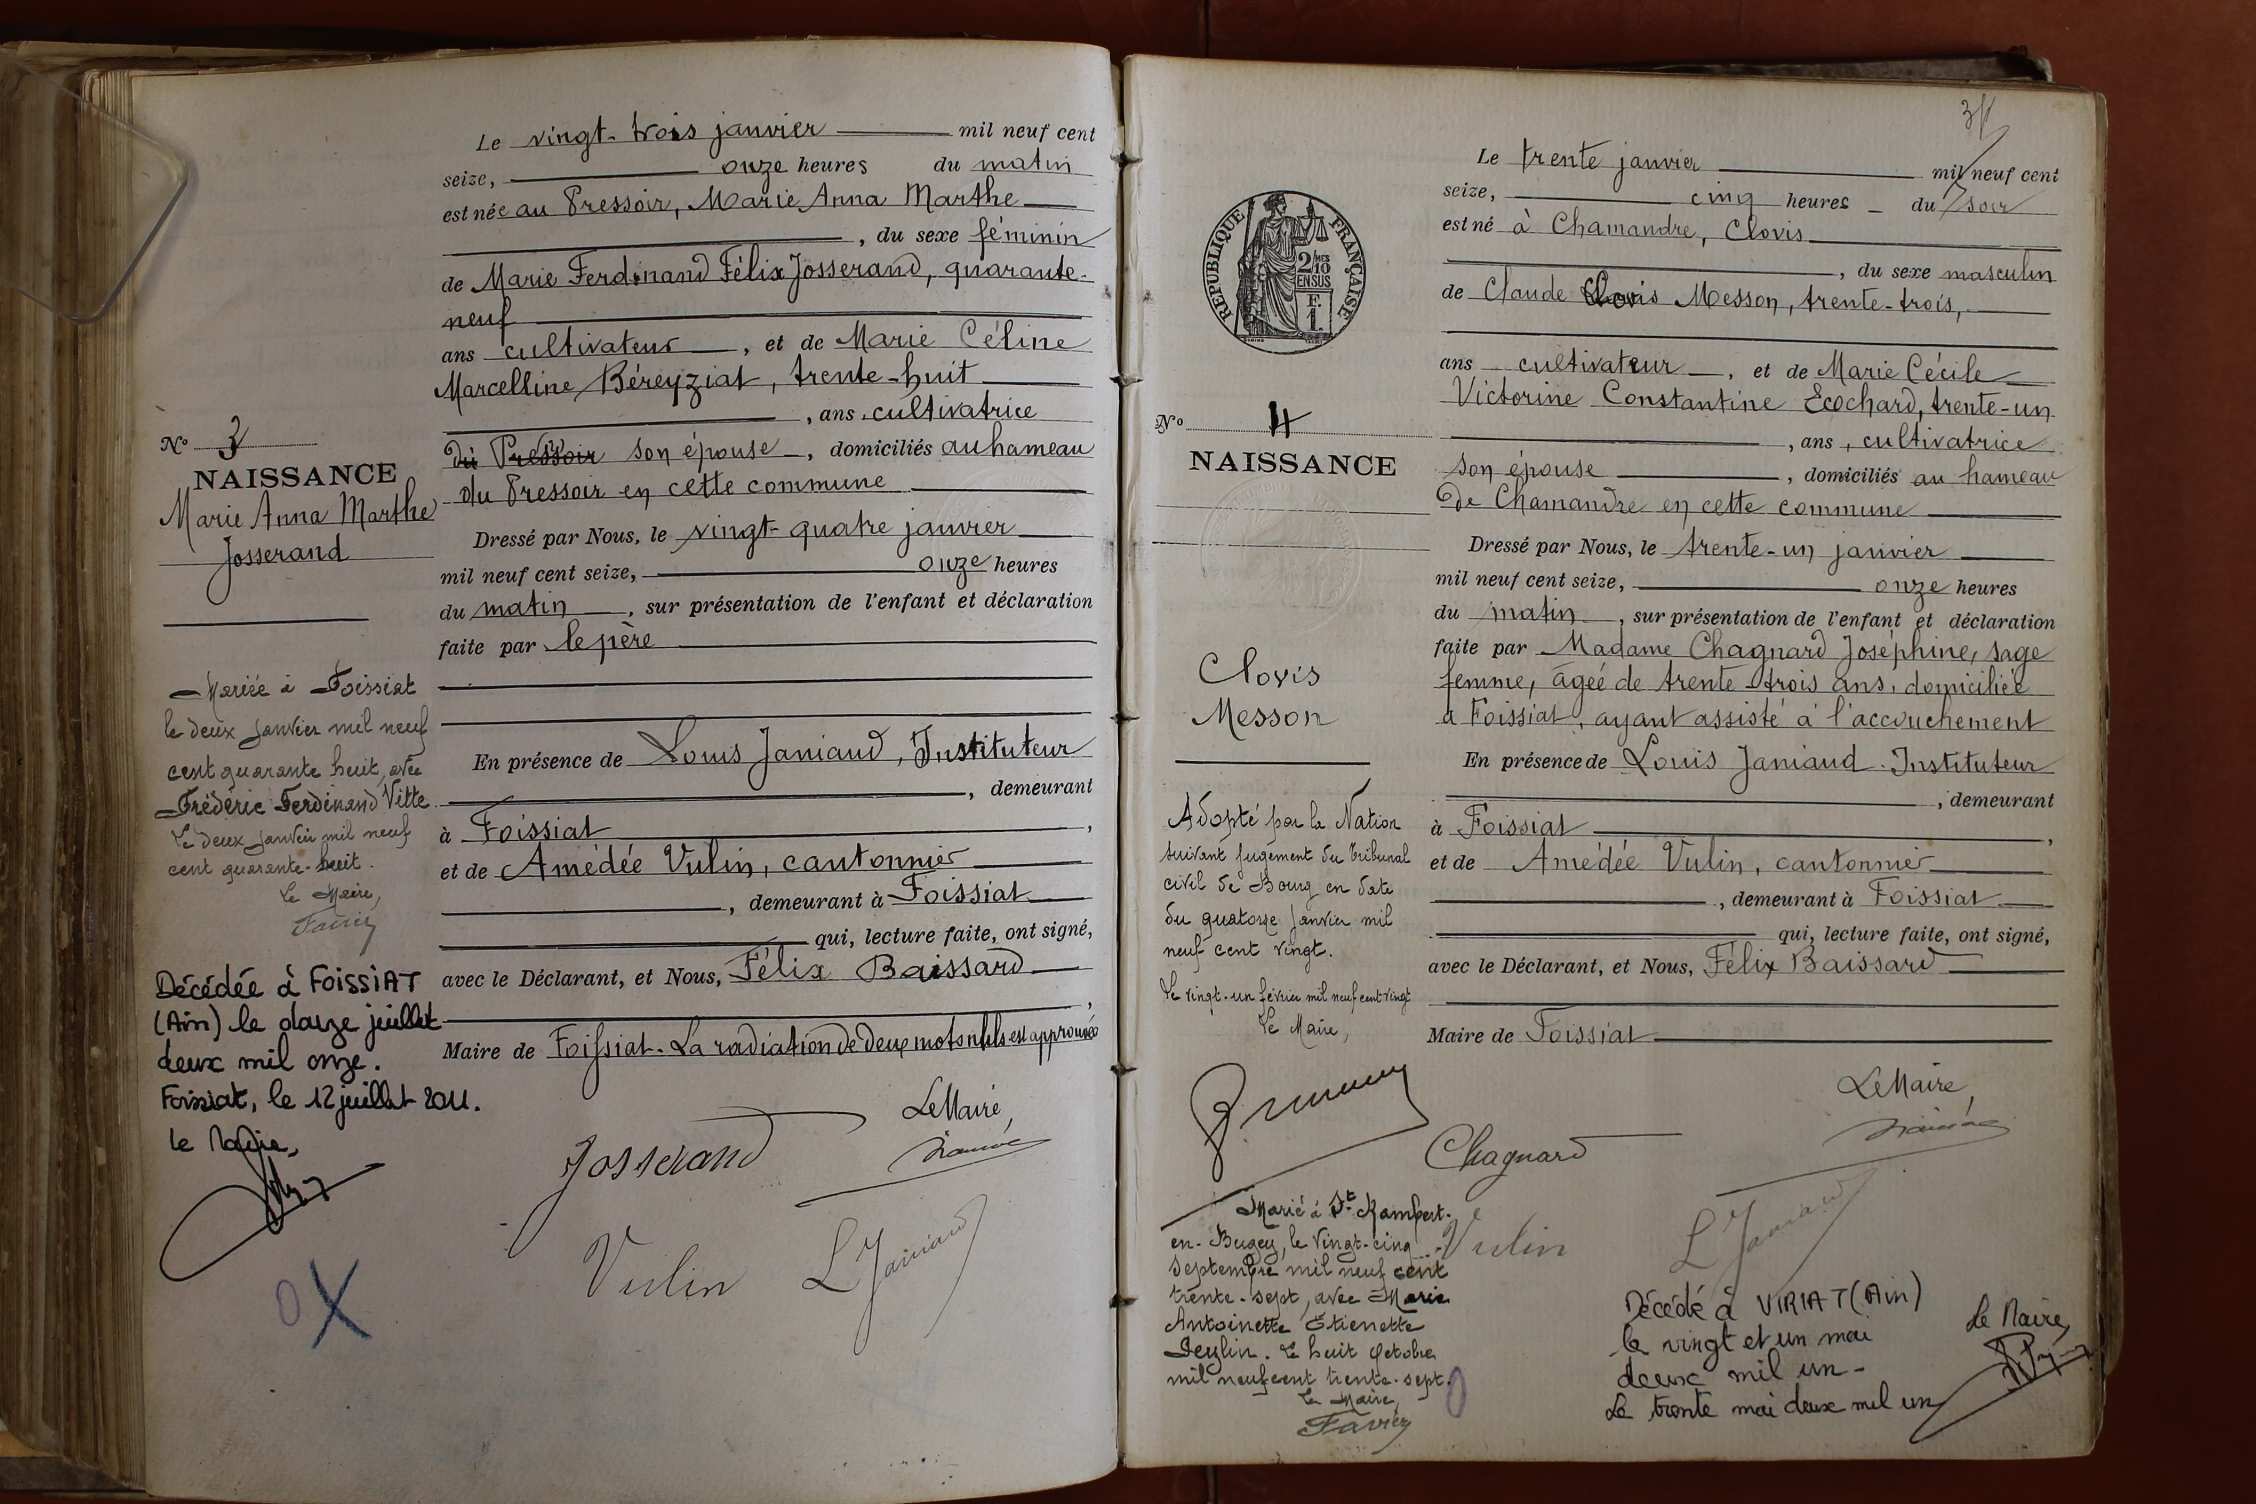 Le vingt-trois janvier mil neuf cent
seize, onze heures du matin
est née au Pressoir, Marie Anna Marthe
, du sexe féminin
de Marie Ferdinand Félix Josserand, quarante-
neuf
ans cultivateur, et de Marie Céline
Marcelline Béreyziat, trente-huit
, ans, cultivatrice
du Pressoir son épouse, domiciliés au hameau
du Pressoir en cette commune
Dressé par Nous, le vingt-quatre janvier
mil neuf cent seize, onze heures
du matin, sur présentation de l'enfant et déclaration
faite par le père
En présence de Louis Janiaud, Instituteur
, demeurant
à Foissiat,
et de Amédée Vulin, cantonnier
, demeurant à Foissiat
qui, lecture faite, ont signé,
avec le Déclarant, et Nous, Félix Baissard
,
Maire de Foissiat. La radiation de deux mots nuls est approuvée
Le Maire,
Josserand
Vulin L Janiaud
No 3
NAISSANCE
Marie Anna Marthe
Josserand
Mariée à Foissiat
le deux janvier mil neuf
cent quarante huit, avec
Frédéric Ferdinand Vitte
Le deux janvier mil neuf
cent quarante-huit.
Le Maire,
Favier
Décédée à FOISSIAT
(Ain) le douze juillet
deux mil onze.
Foissiat, le 12 juillet 2011.
Le Maire,
0X
Le trente janvier mil neuf cent
seize, cinq heures du soir
est né à Chamandre, Clovis
, du sexe masculin
de Claude Clovis Messon, trente-trois,
ans cultivateur, et de Marie Cécile
Victorine Constantine Ecochard, trente-un
, ans, cultivatrice
son épouse, domiciliés au hameau
de Chamandre en cette commune
Dressé par Nous, le trente-un janvier
mil neuf cent seize, onze heures
du matin, sur présentation de l'enfant et déclaration
faite par Madame Chagnard Joséphine, sage
femme, âgée de trente-trois ans, domiciliée
à Foissiat, ayant assisté à l'accouchement
En présence de Louis Janiaud. Instituteur
, demeurant
à Foissiat,
et de Amédée Vulin, cantonnier
, demeurant à Foissiat
qui, lecture faite, ont signé,
avec le Déclarant, et Nous, Félix Baissard
Maire de Foissiat
Le Maire,
Chagnard
Vulin L Janiaud
RÉPUBLIQUE FRANÇAISE
2/10 MES
EN SUS
F.
1.
No 4
NAISSANCE
Clovis
Messon
Adopté par la Nation
suivant jugement du Tribunal
civil de Bourg en date
du quatorze janvier mil
neuf cent vingt.
Le vingt-un février mil neuf cent vingt
Le Maire,
Marié à St Rambert-
en-Bugey, le vingt-cinq
septembre mil neuf cent
trente-sept, avec Marie
Antoinette Etienette
Le huit octobre
mil neuf cent trente-sept.
Le Maire,
Favier
0
Décédé à VIRIAT (Ain)
le vingt et un mai
deux mil un -
Le trente mai deux mil un
Le Maire,